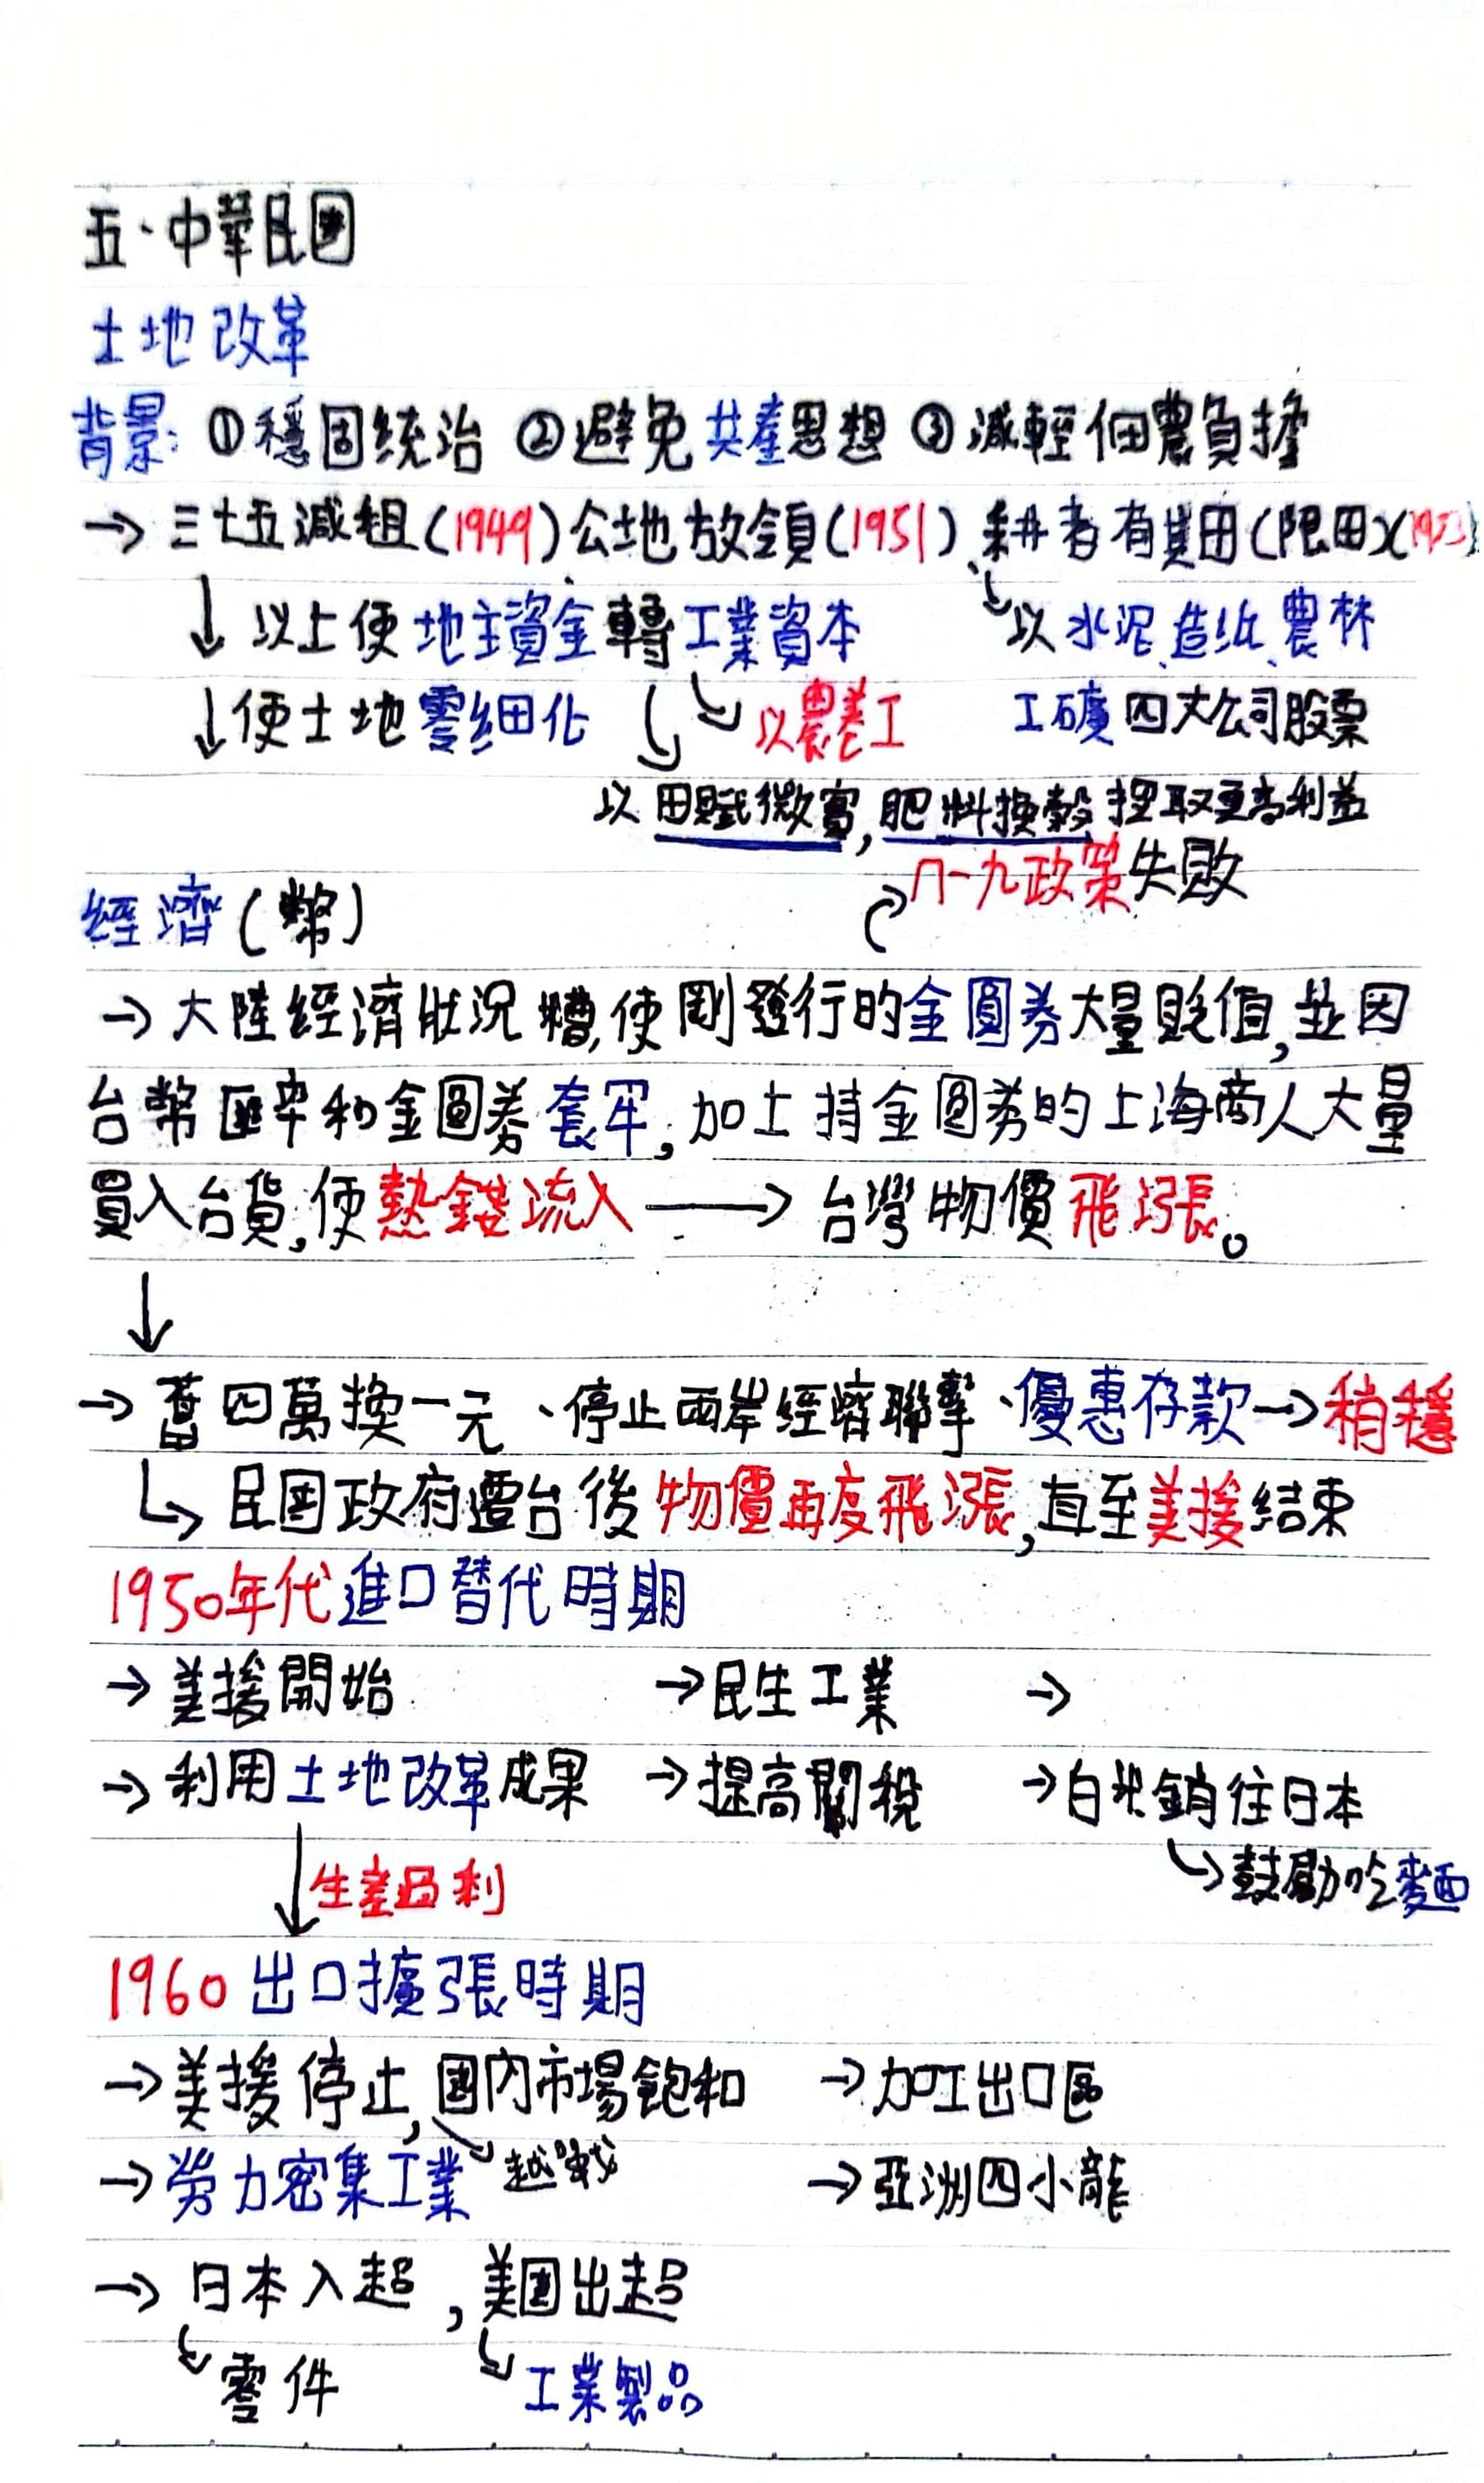 五、中華民國
土地改革
背景：①穩固統治 ②避免共產思想 ③減輕佃農負擔
→ 三七五減租(1949)公地放領(1951)、耕者有其田(限田)(1953)
↓ 以上使地主資金轉工業資本 ↘以水泥、造紙、農林
↓使土地零細化 ↘以農養工 工礦四大公司股票
以田賦徵實,肥料換穀 捏取更高利益
經濟(幣) 八一九政策失敗
→ 大陸經濟狀況糟,使剛發行的金圓券大量貶值,並因
台幣匯率和金圓券套牢,加上持金圓券的上海商人大量
買入台貨,使熱錢流入 → 台灣物價飛漲。
↓
→ 舊四萬換一元、停止兩岸經濟聯繫、優惠存款→稍穩
↳ 民國政府遷台後物價再度飛漲,直至美援結束
1950年代進口替代時期
→ 美援開始 →民生工業 →
→ 利用土地改革成果 →提高關稅 →白米銷往日本
↓生產過剩 ↳鼓勵吃麵
1960 出口擴張時期
→美援停止,國內市場飽和 →加工出口區
→勞力密集工業 ↘越戰 →亞洲四小龍
→ 日本入超,美國出超
↳零件 ↳工業製品